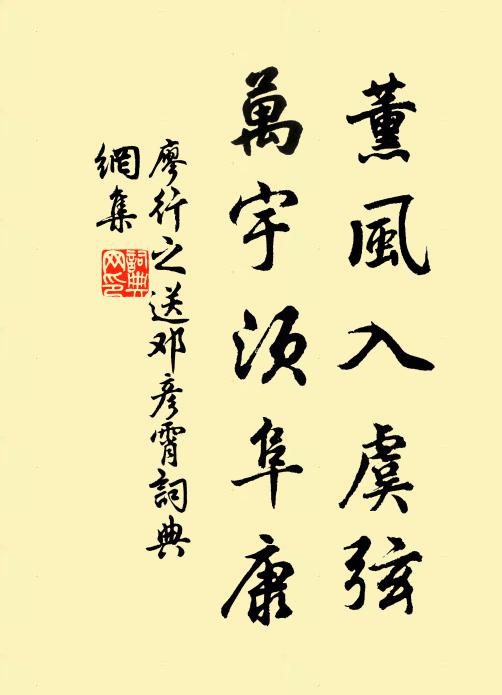 薰風入虞弦
萬宇須阜康
廖行之送邓彦霄詞典
網集
詞典
网印